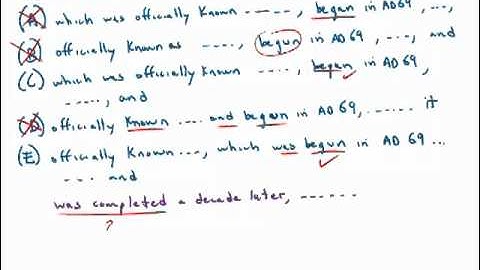 (A) which was officially known -----, began in AD 69, ...,
(B) officially known as ----, begun in AD 69, ..., and
(C) which was officially known ----, began in AD 69,
-----, and
(D) officially known ... and began in AD 69, ...... it
(E) officially known ..., which was begun in AD 69 ...
--- and
was completed a decade later, ------
?